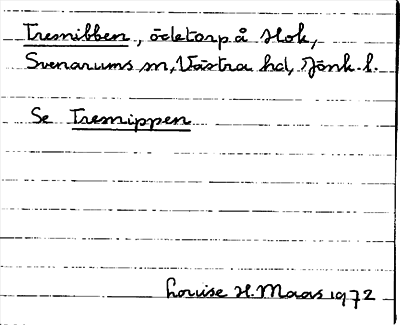 Tremibben, ödetorp å Hok,
Svenarums sn, Västra hd, Jönk. l.
Se Tremippen
Louise H. Maas 1972